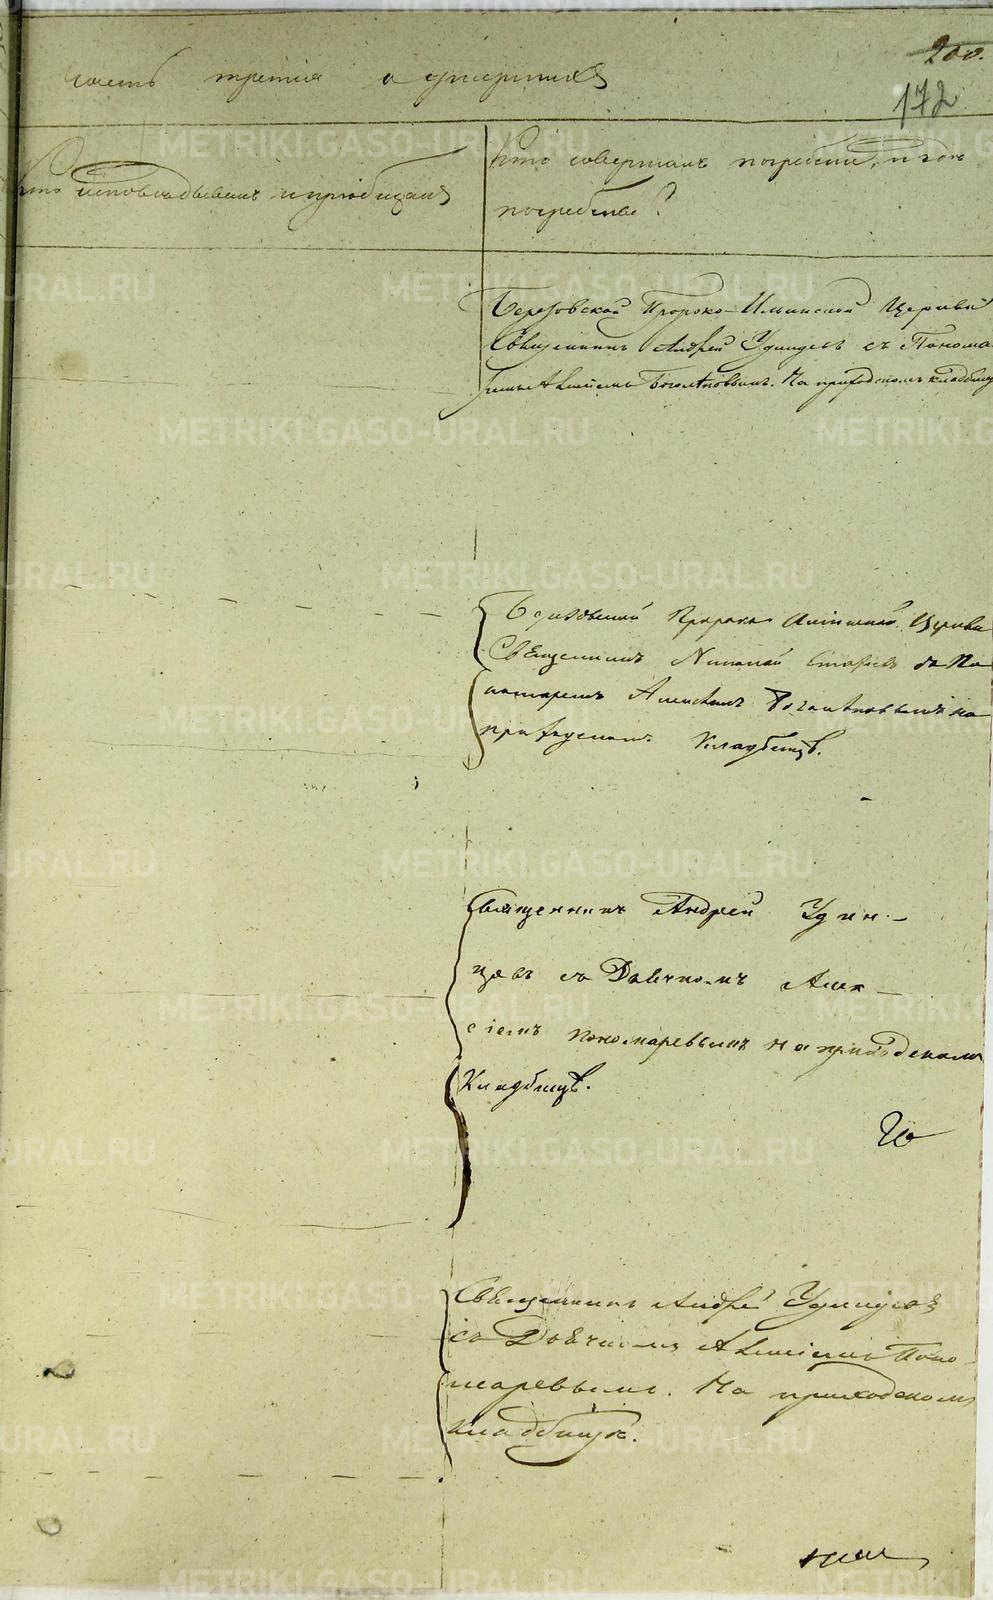 200.
172
часть третія о умершихъ
Кто исповѣдывалъ и пріобщалъ
Кто совершалъ погребеніе, и гдѣ
погребены?
Березовской Пророко-Ильинской Церкви
Священникъ Андрей Удинцевъ съ Понома
Алексѣемъ Боголѣповымъ. На приходскомъ кладбищ
Пророко Церкви
Священникъ Николай съ По
номаремъ Алексѣемъ Боголѣповымъ на
приходскомъ кладбищѣ.
Священникъ Андрей Удин-
цевъ съ Дьячкомъ Алек-
сіемъ Пономаревымъ на приходскомъ
Кладбищѣ.
Священникъ Андрей Удинцевъ
съ Дьячкомъ Алексіемъ Поно-
маревымъ. На приходскомъ
кладбищѣ.
METRIKI.GASO-URAL.RU